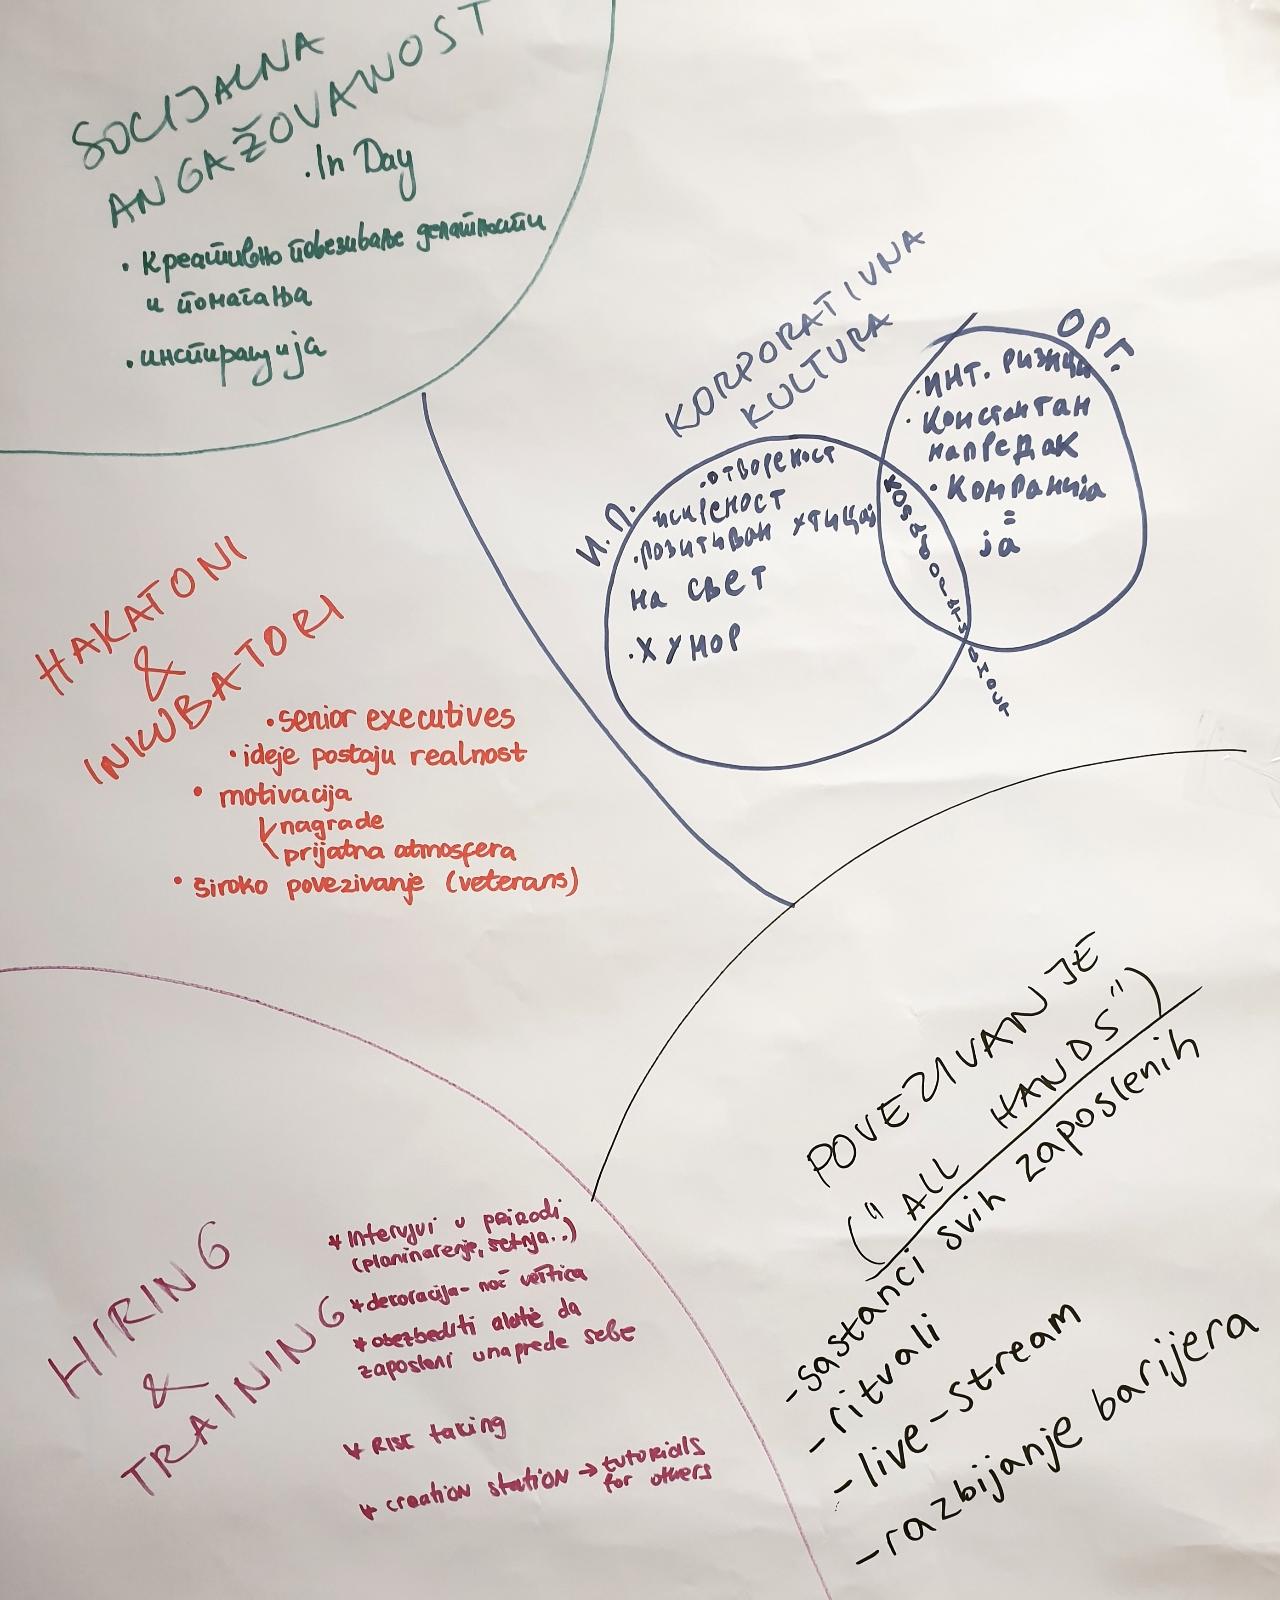 SOCIJALNA
ANGAŽOVANOST
.In Day
• Креативно повезивање делатности
и помагања
• инспирација
KORPORATIVNA
KULTURA
И. П.
• отвореност
искреност
• позитиван утицај
на свет
• хумор
ОРГ.
• инт. ризици
• Константан
напредак
• Компанија
=
ја
HAKATONI
&
INKUBATORI
• senior executives
• ideje postaju realnost
• motivacija
nagrade
prijatna atmosfera
• široko povezivanje (veterans)
POVEZIVANJE
("ALL HANDS")
- sastanci svih zaposlenih
- rituali
- live-stream
- razbijanje barijera
HIRING
&
TRAINING
* Intervjui u prirodi
(planinarenje, šetnja..)
* dekoracija - noć veštica
* obezbediti alate da
zaposleni unaprede sebe
* RISK taking
* creation station → tutorials
for others